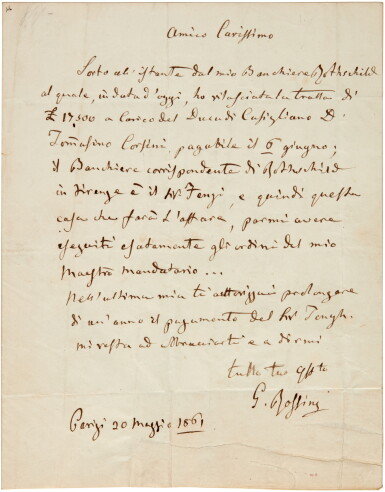 Amico Carissimo
Sorto all'istante dal mio Banchiere Rothschild
al quale, in data d'oggi, ho rilasciata la tratta di
£ 17,500 a Carico del Duca di Casigliano Dn
Tommasino Corsini, pagabile il 6 giugno;
il Banchiere corrispondente di Rothschild
in Firenze è il Sr Fenzi, e quindi questa
casa che farà l'affare, parmi avere
eseguiti esatamente gli ordini del mio
Maestro mandatario ...
Nell'ultima mia ti autorizzai prolongare
di un'anno il pagamento del Sr
mi resta ad Abbracciarti e a dirmi
tutto tuo
G. Rossini
Parigi 20 Maggio 1861